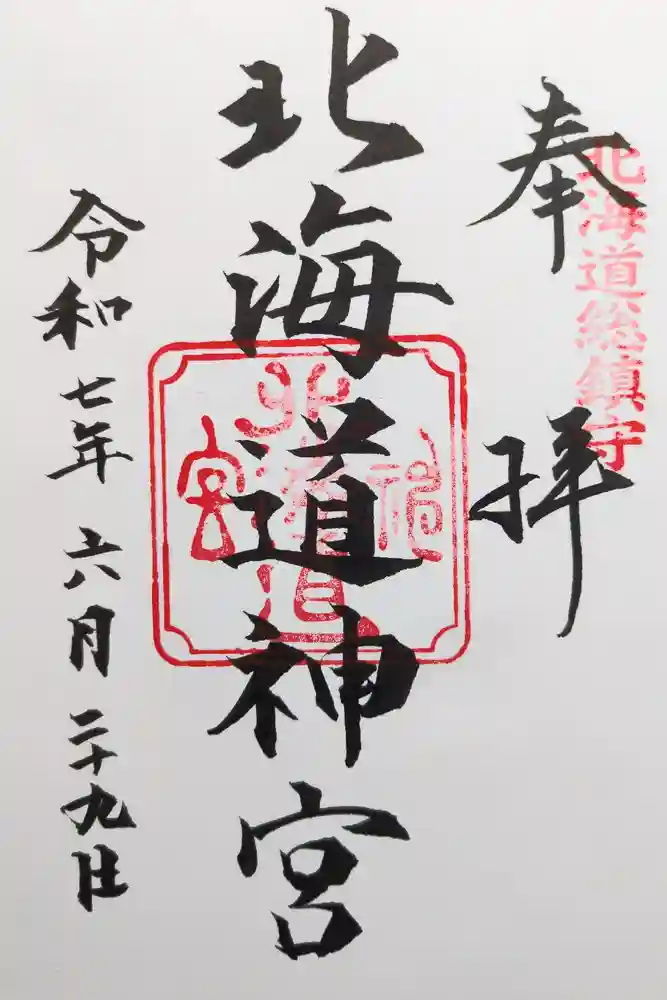 奉拝
北海道総鎮守
北海道神宮
北海道神宮
令和七年六月二十九日